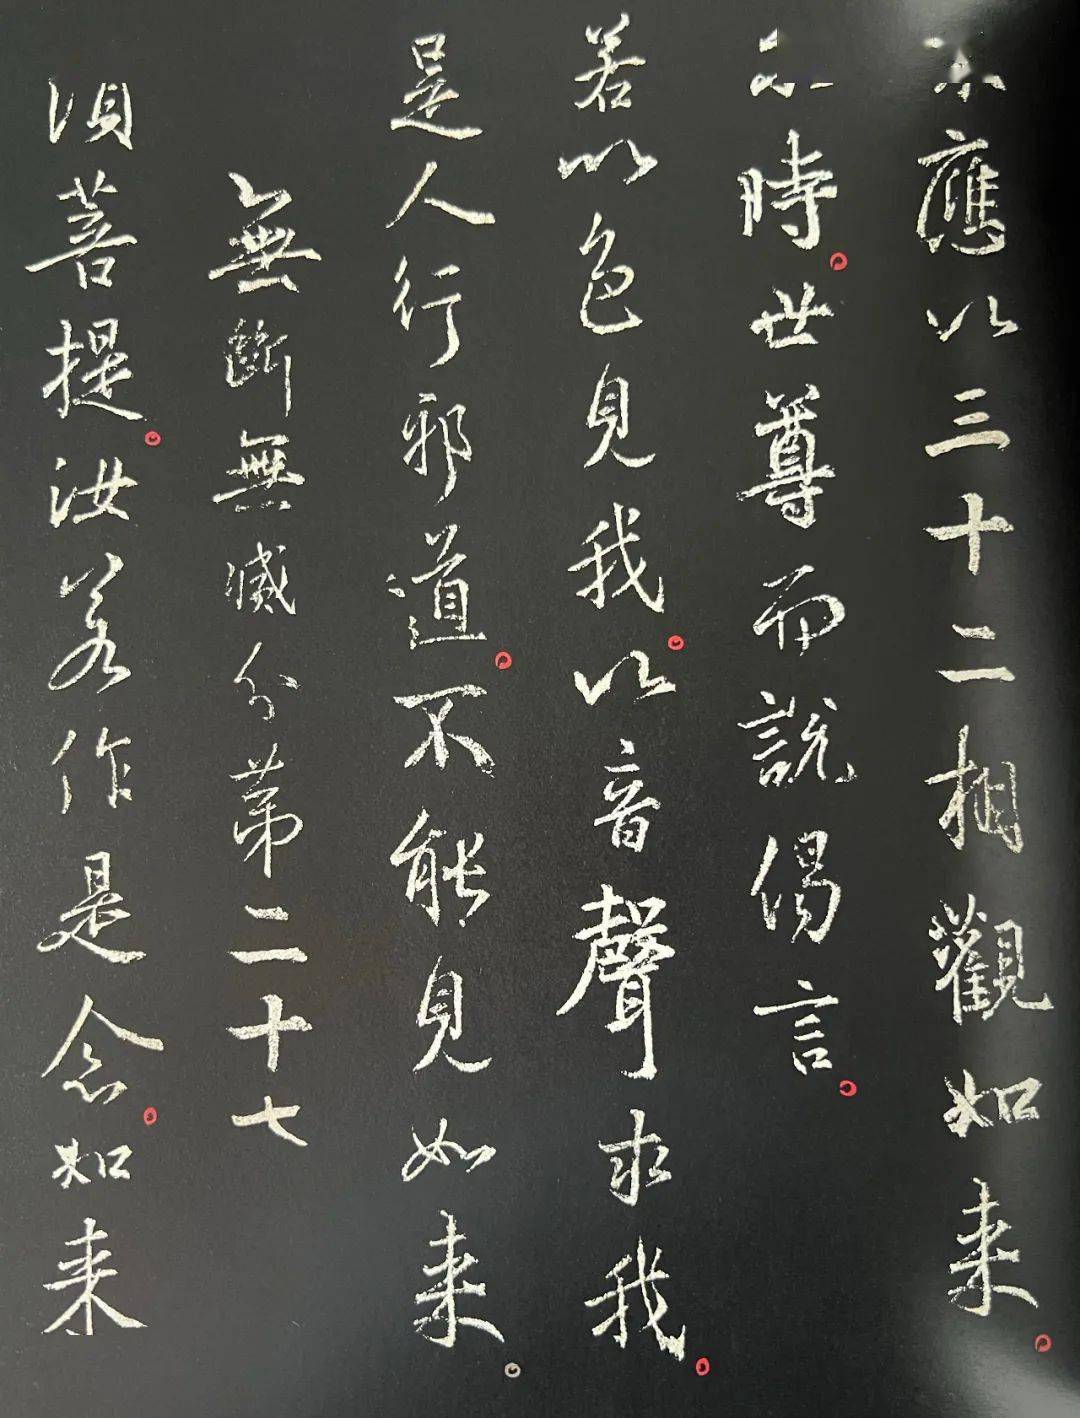 應以三十二相觀如来。
時。世尊而說偈言。
若以色見我。以音聲求我。
是人行邪道。不能見如来。
無斷無滅分第二十七
須菩提。汝若作是念。如来